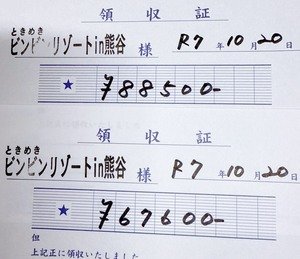 領収証
ときめき
ピンピンリゾートin熊谷 様 R7年10月20日
★ ¥88500-
領収証
ときめき
ピンピンリゾートin熊谷 様 R7年10月20日
★ ¥67600-
但
上記正に領収いたしました